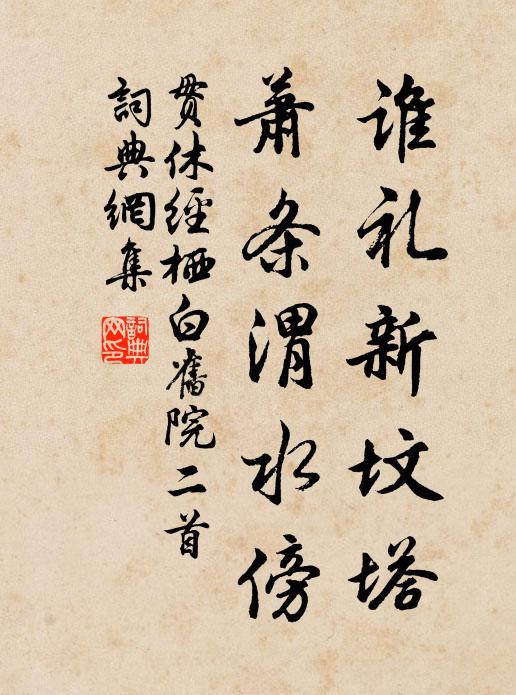 谁礼新坟塔
萧条渭水傍
贯休经栖白舊院二首
詞典網集
詞典網印